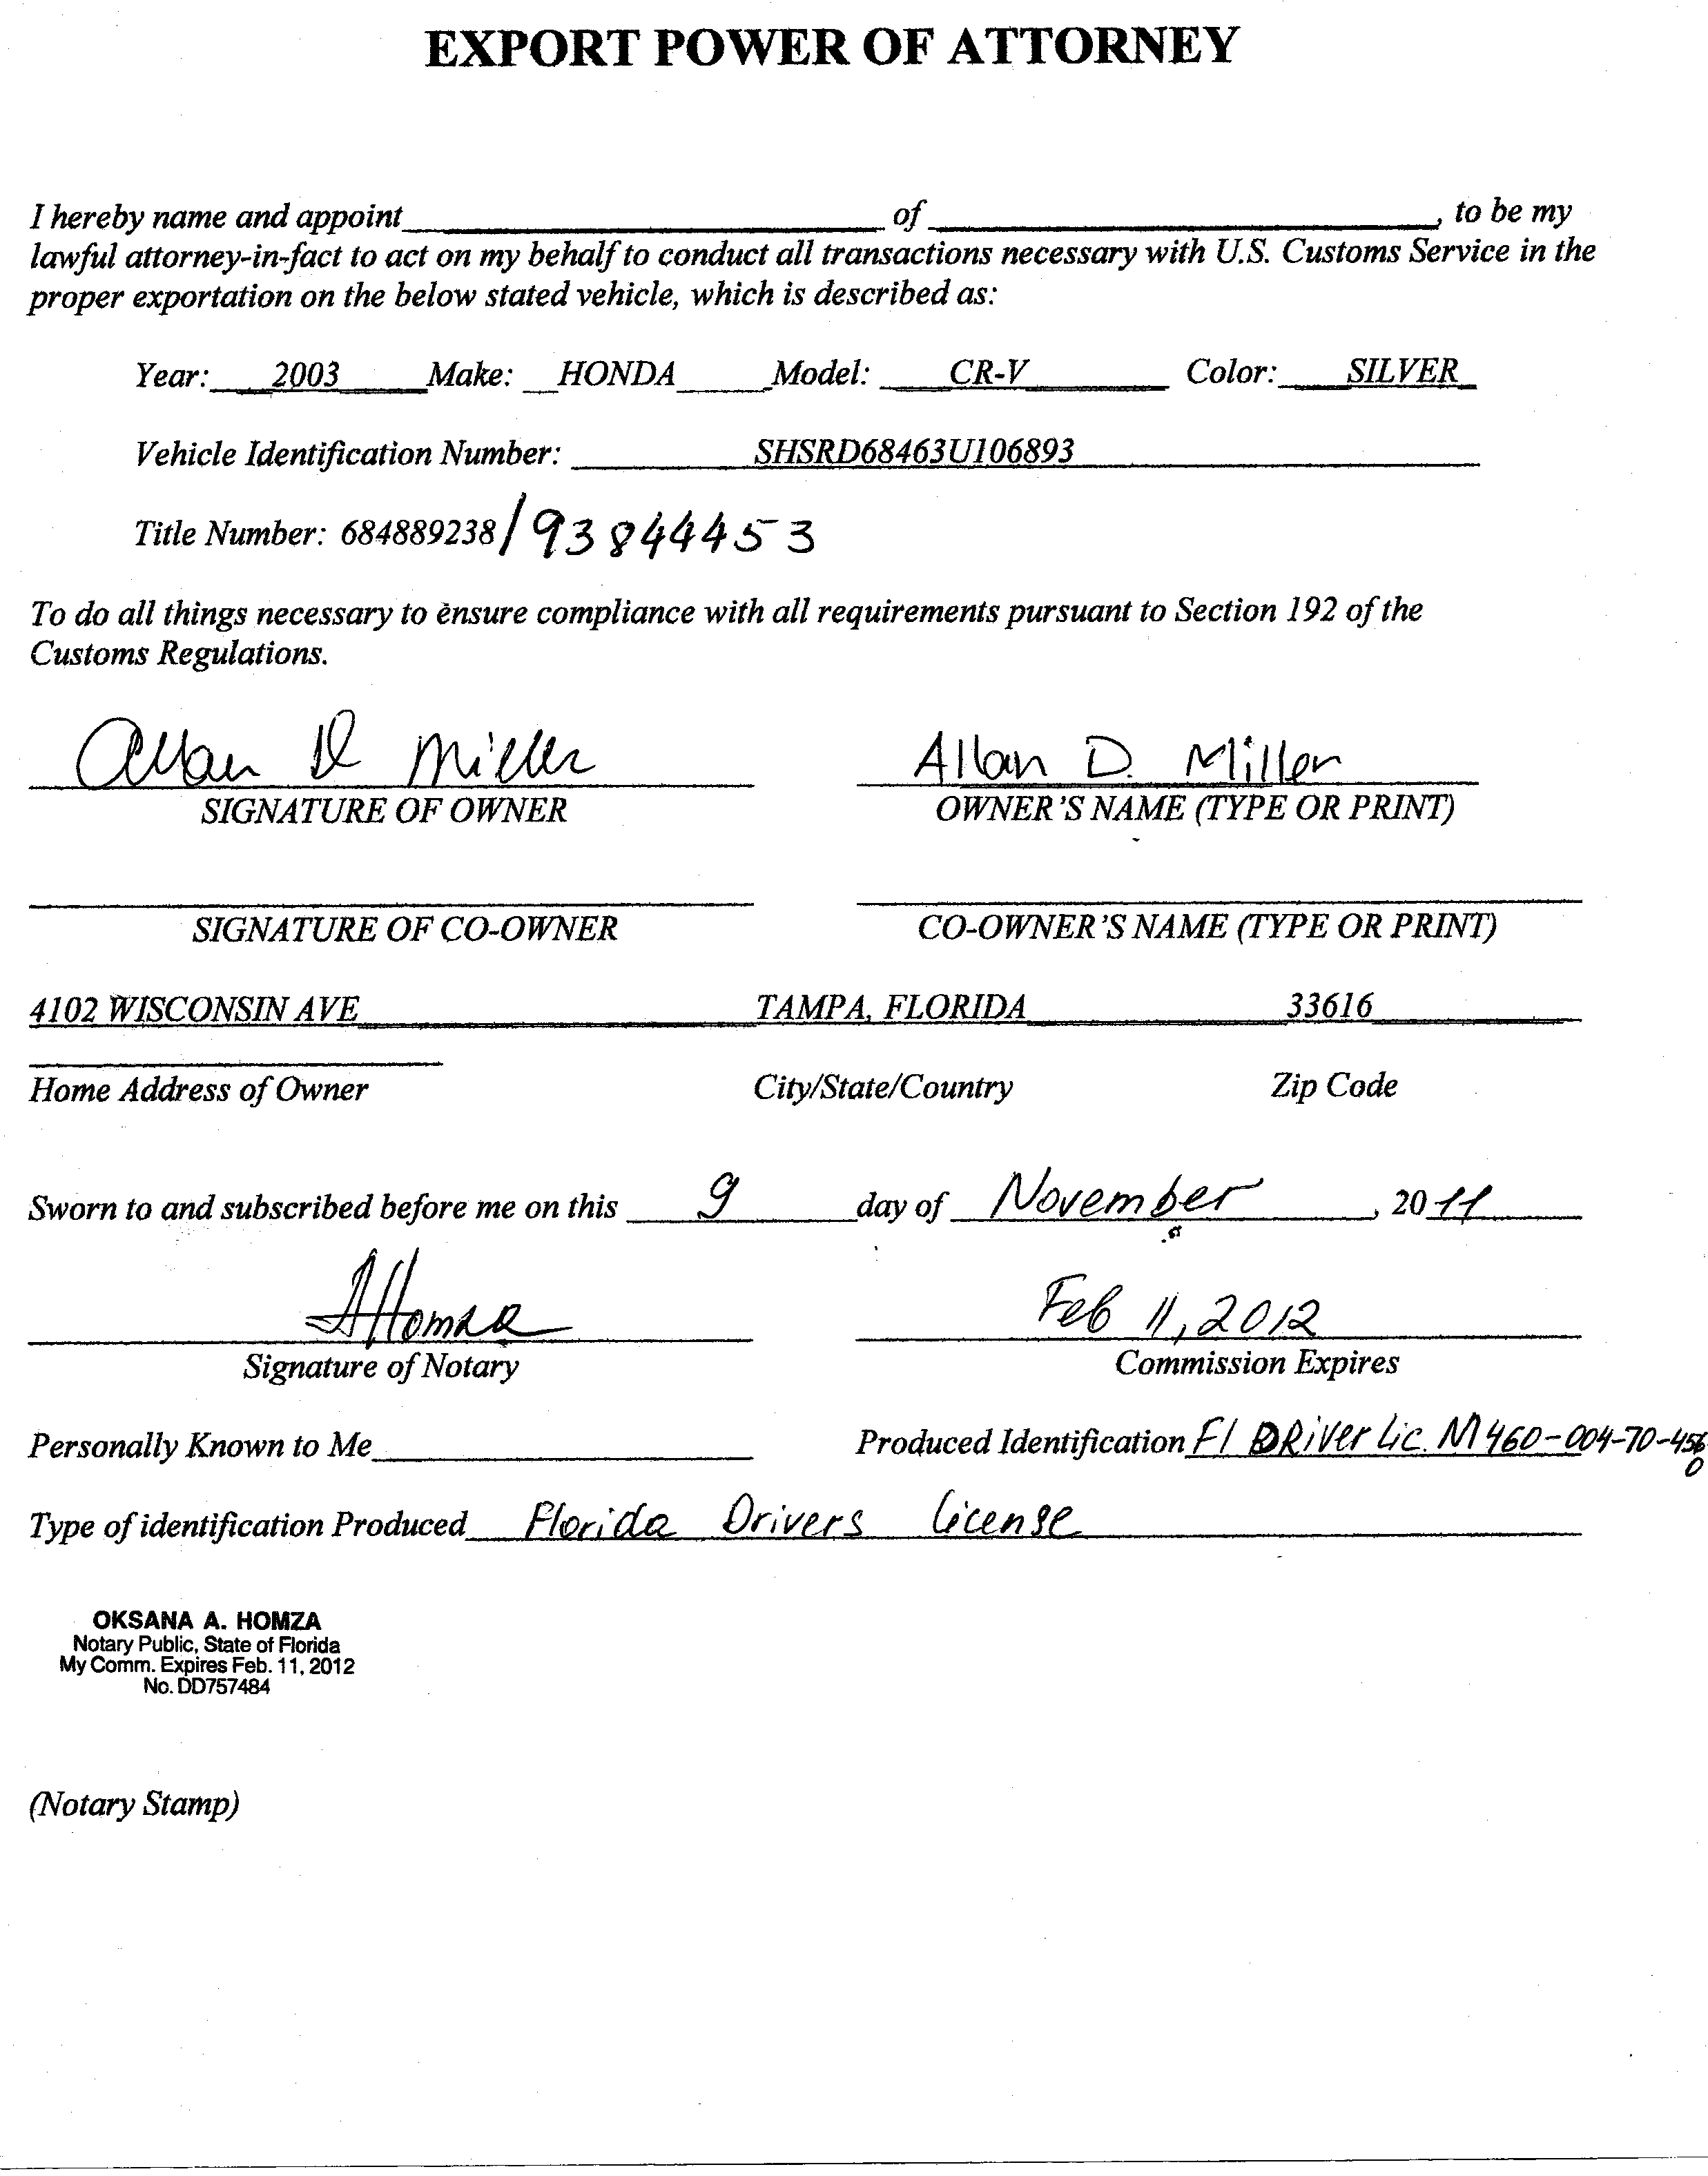 EXPORT POWER OF ATTORNEY
I hereby name and appoint____ of____, to be my
lawful attorney-in-fact to act on my behalf to conduct all transactions necessary with U.S. Customs Service in the
proper exportation on the below stated vehicle, which is described as:
Year: 2003 Make: HONDA Model: CR-V Color: SILVER
Vehicle Identification Number: SHSRD68463U106893
Title Number: 684889238/93844453
To do all things necessary to ensure compliance with all requirements pursuant to Section 192 of the
Customs Regulations.
Allan D Miller Allan D. Miller
SIGNATURE OF OWNER OWNER'S NAME (TYPE OR PRINT)
SIGNATURE OF CO-OWNER CO-OWNER'S NAME (TYPE OR PRINT)
4102 WISCONSIN AVE TAMPA, FLORIDA 33616
Home Address of Owner City/State/Country Zip Code
Sworn to and subscribed before me on this 9 day of November, 2011
AHomza Feb 11, 2012
Signature of Notary Commission Expires
Personally Known to Me____ Produced Identification Fl DRiver Lic. M460-004-70-456
0
Type of identification Produced Florida Drivers License
OKSANA A. HOMZA
Notary Public, State of Florida
My Comm. Expires Feb. 11, 2012
No. DD757484
(Notary Stamp)